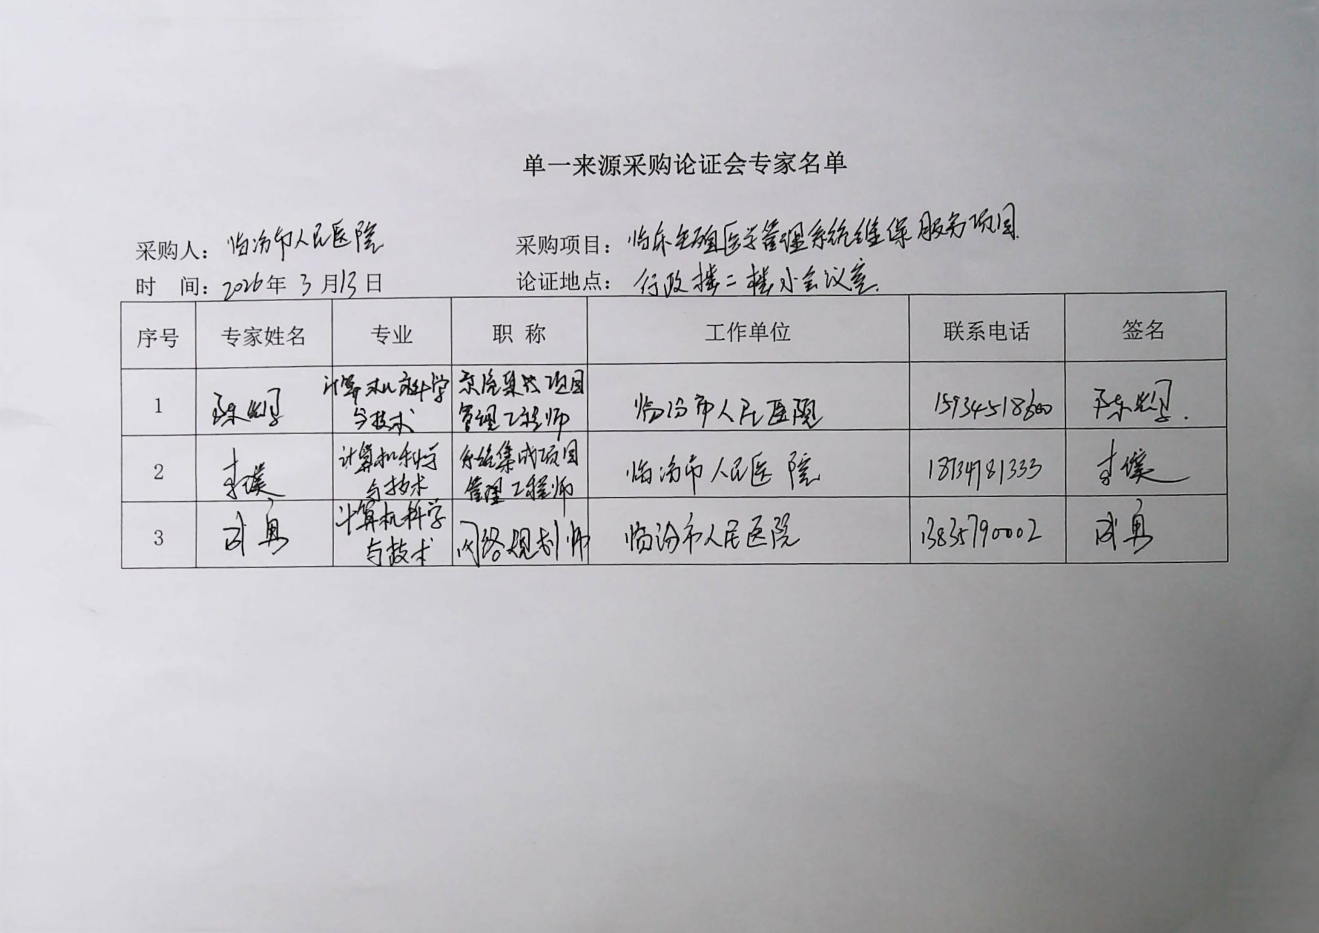 单一来源采购论证会专家名单
采购人：临汾市人民医院 采购项目：临床生殖医学管理系统维保服务项目
时 间：2026年 3月13日 论证地点：行政楼二楼小会议室.
序号 专家姓名 专业 职 称 工作单位 联系电话 签名
1 陈 计算机科学与技术 系统集成项目管理工程师 临汾市人民医院 15934518600 陈
2 李 计算机科学与技术 系统集成项目管理工程师 临汾市人民医院 18734781333 李
3 成勇 计算机科学与技术 网络规划师 临汾市人民医院 13835790002 成勇